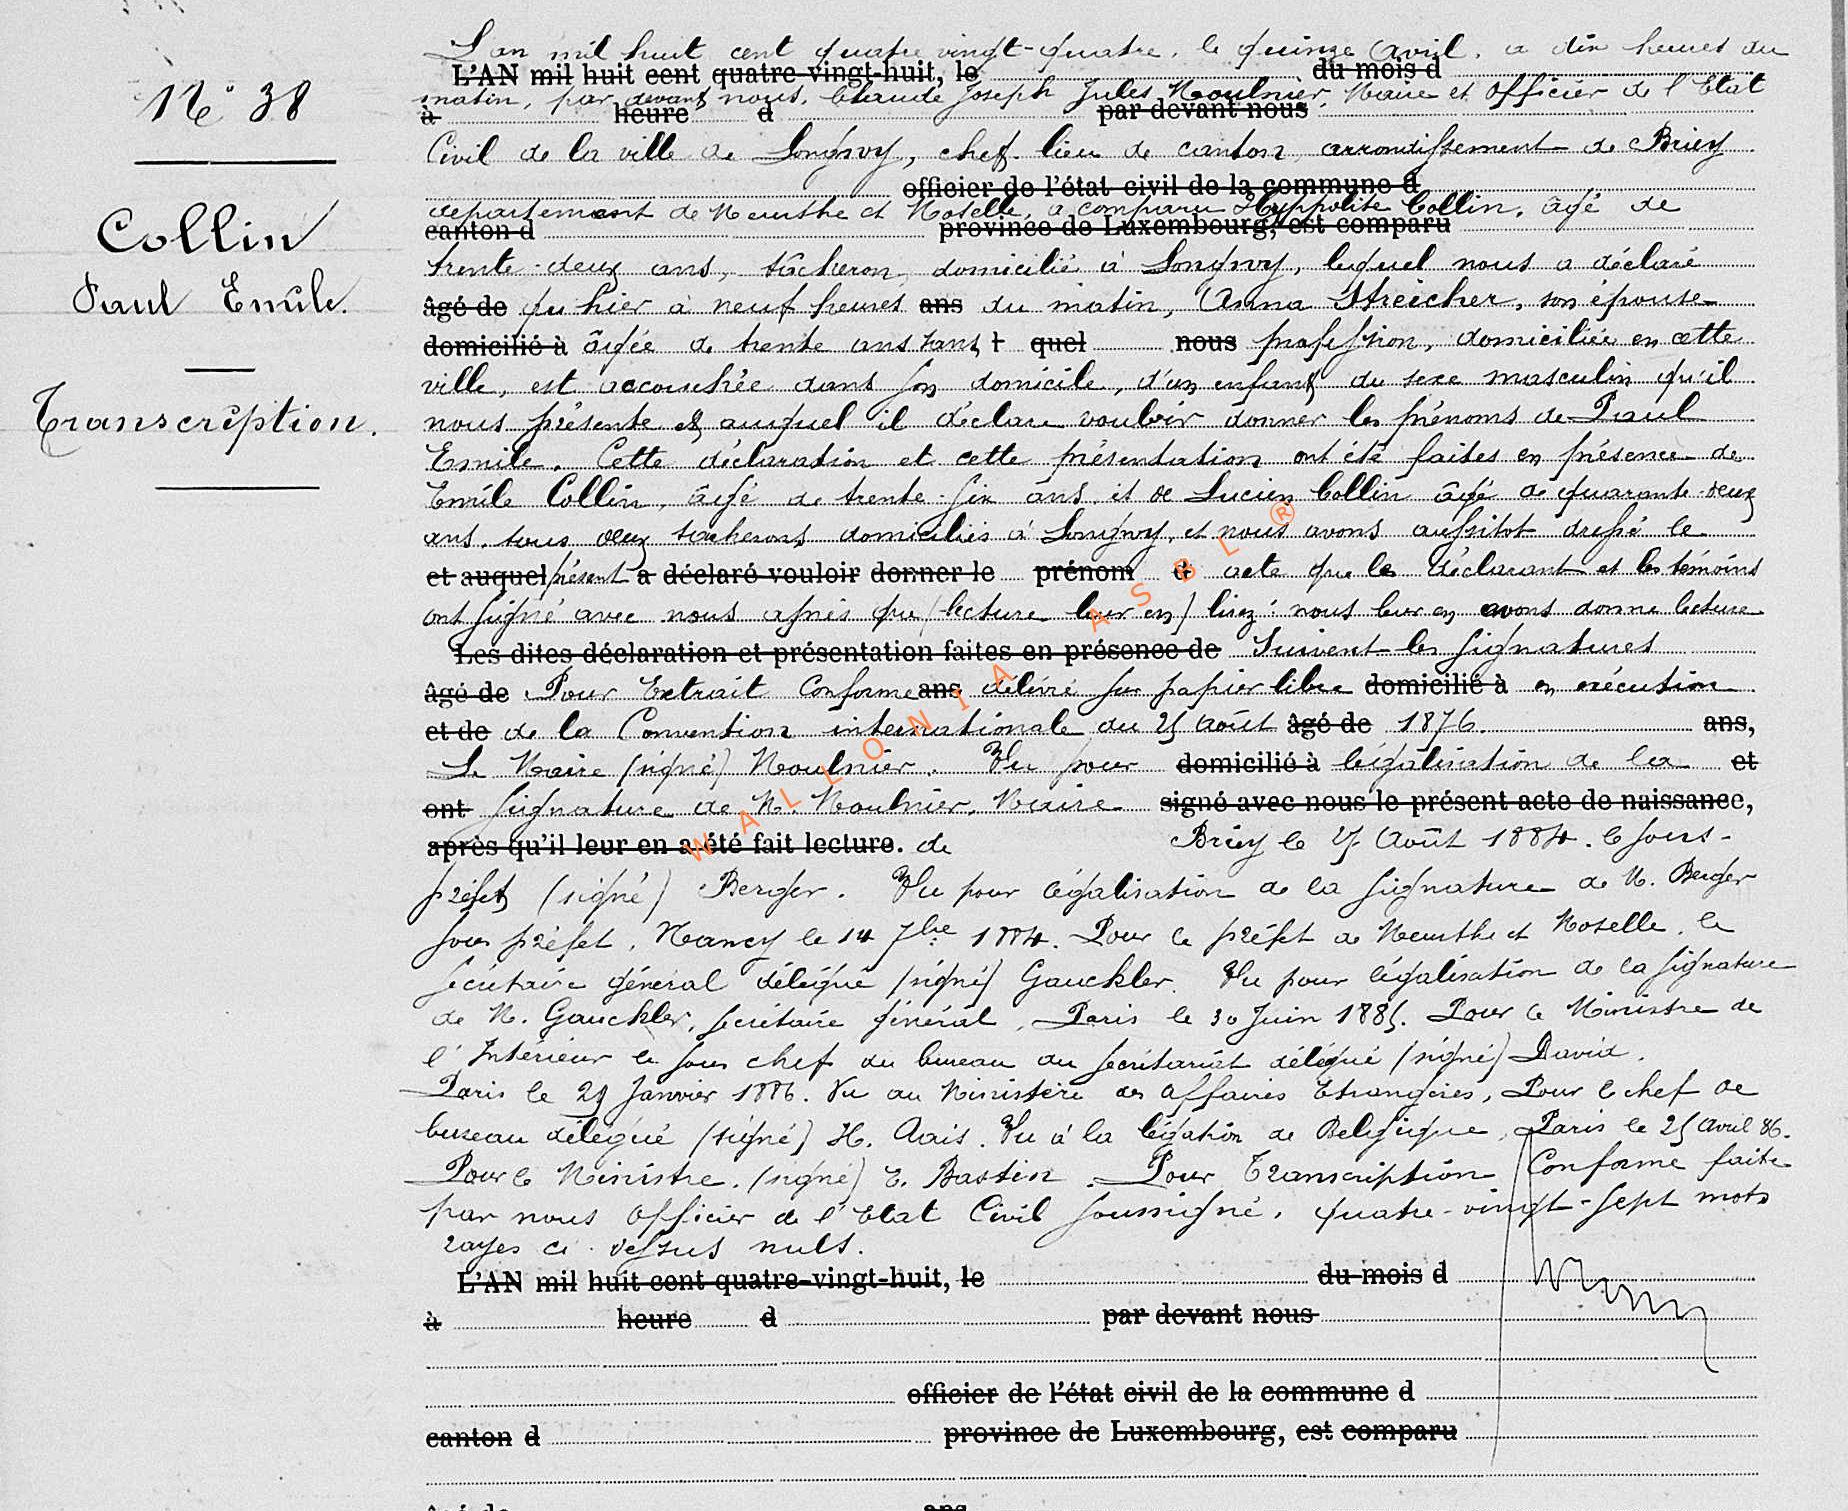 N° 38
Collin
Paul Emile.
Transcription.
L'an mil huit cent quatre vingt-quatre, le quinze Avril, a dix heures du
L'AN mil huit cent quatre-vingt-huit, le du mois d
matin, par devant nous, Claude Joseph Jules Moulnier, Maire et Officier de l'Etat
à heure d par devant nous
Civil de la ville de Longwy, chef-lieu de canton, arrondissement de Briey
officier de l'état civil de la commune d
département de Meurthe et Moselle, a comparu Hyppolite Collin, âgé de
canton d province de Luxembourg, est comparu
trente-deux ans, tâcheron, domicilié à Longwy, lequel nous a déclaré
âgé de qu'hier à neuf heures ans du matin, Anna Streicher, son épouse
domicilié à âgée de trente ans sans t quel nous profession, domiciliée en cette
ville, est accouchée dans son domicile, d'un enfant du sexe masculin qu'il
nous présente et auquel il déclare vouloir donner les prénoms de Paul
Emile. Cette déclaration et cette présentation ont été faites en présence de
Emile Collin, âgé de trente-six ans et de Lucien Collin âgé de quarante-deux
ans, tous deux tâcherons domiciliés à Longwy, et nous avons aussitot dressé le
et auquel présent a déclaré vouloir donner le prénom d acte que le déclarant et les témoins
ont signé avec nous après que (lecture leur en) lisez: nous leur en avons donné lecture
Les dites déclaration et présentation faites en présence de Suivent les signatures
âgé de Pour Extrait Conforme ans délivré sur papier libre domicilié à en exécution
et de de la Convention internationale du 25 Août âgé de 1876. ans,
Le Maire (signé) Moulnier. Vu pour domicilié à légalisation de la et
ont signature de M. Moulnier, Maire signé avec nous le présent acte de naissance,
après qu'il leur en a été fait lecture. de Briey le 27 Août 1884. le sous-
préfet (signé) Berger. Vu pour légalisation de la signature de M. Berger
sous préfet, Nancy le 14 7bre 1884. Pour le préfet de Meurthe et Moselle, le
secrétaire général délégué (signé) Gauckler. Vu pour légalisation de la signature
de M. Gauckler, secrétaire général, Paris le 30 Juin 1885. Pour le Ministre de
l'Intérieur le sous chef du bureau du secrétariat délégué (signé) David.
Paris le 25 Janvier 1886. Vu au Ministère des Affaires Etrangères, Pour le chef de
bureau délégué (signé) H. Aais. Vu à la légation de Belgique, Paris le 25 Avril 86.
Pour le Ministre. (signé) E. Bastin. Pour Transcription Conforme faite
par nous Officier de l'Etat Civil soussigné, quatre-vingt-sept mots
rayés ci-dessus nuls.
L'AN mil huit cent quatre-vingt-huit, le du mois d
à heure d par devant nous
officier de l'état civil de la commune d
canton d province de Luxembourg, est comparu
âgé de ans
WALLONIA ASBL ®